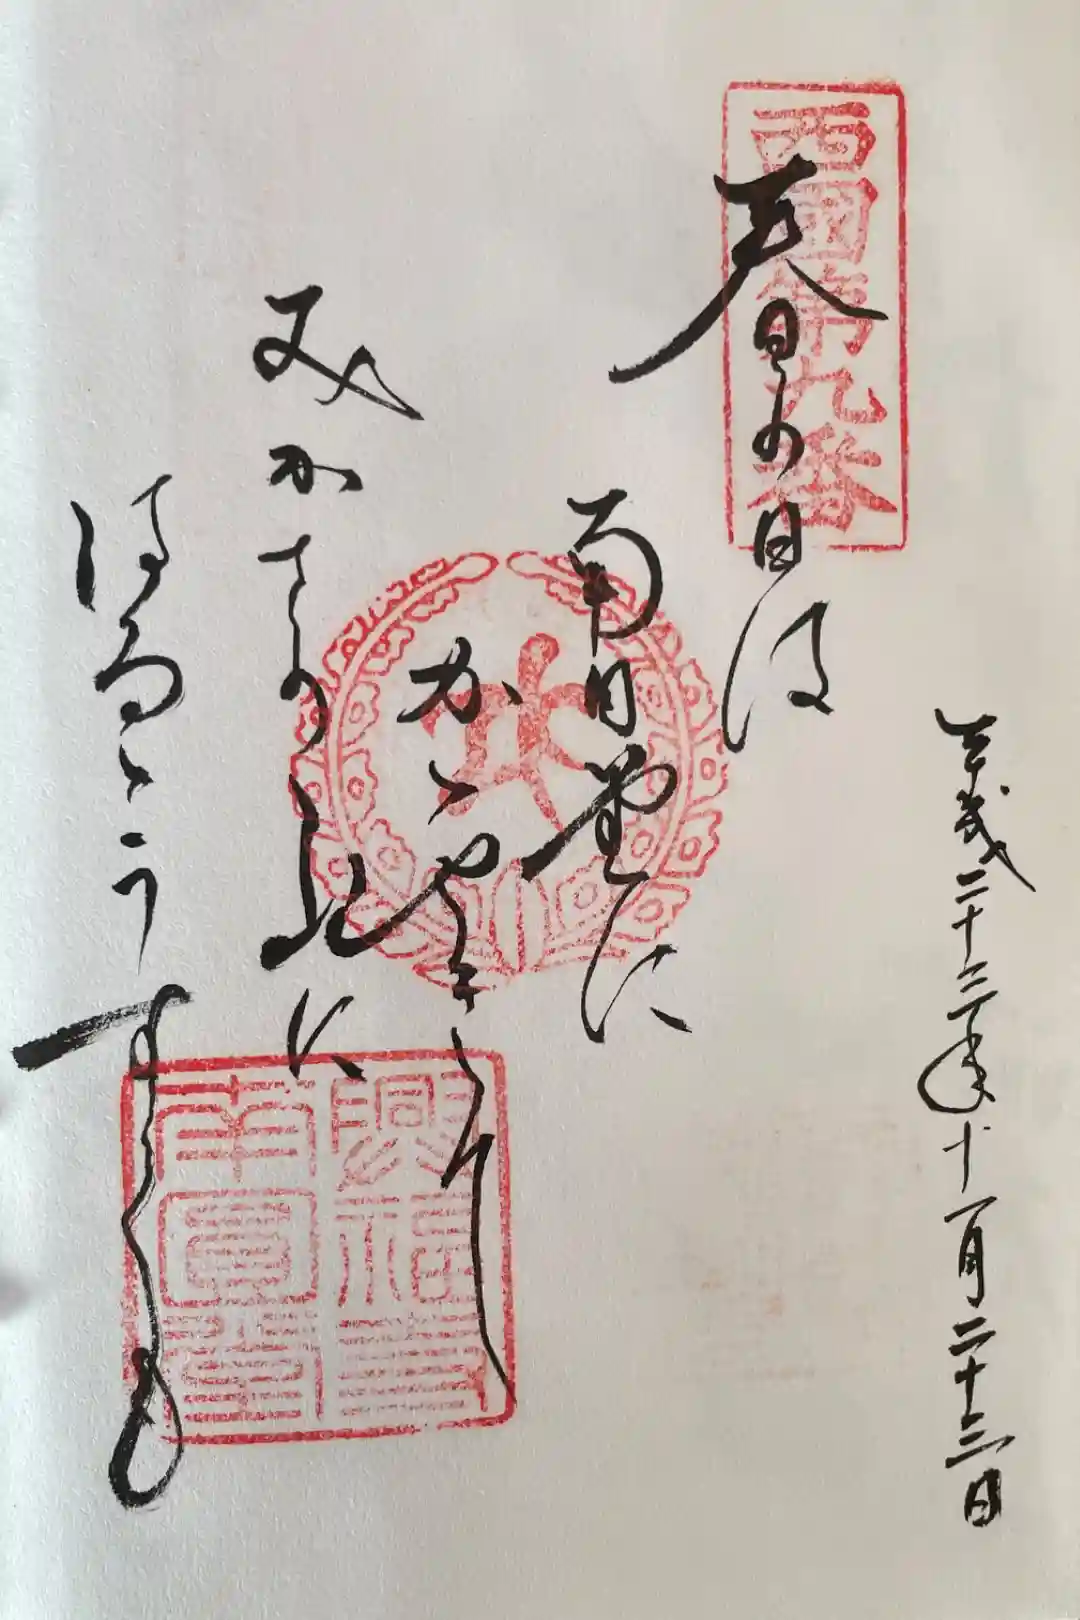 平成二十三年十一月二十三日
西國第九番
春の日は
南円堂に
かゝやきて
みかさの山に
はるゝうすくも
興福
南圓